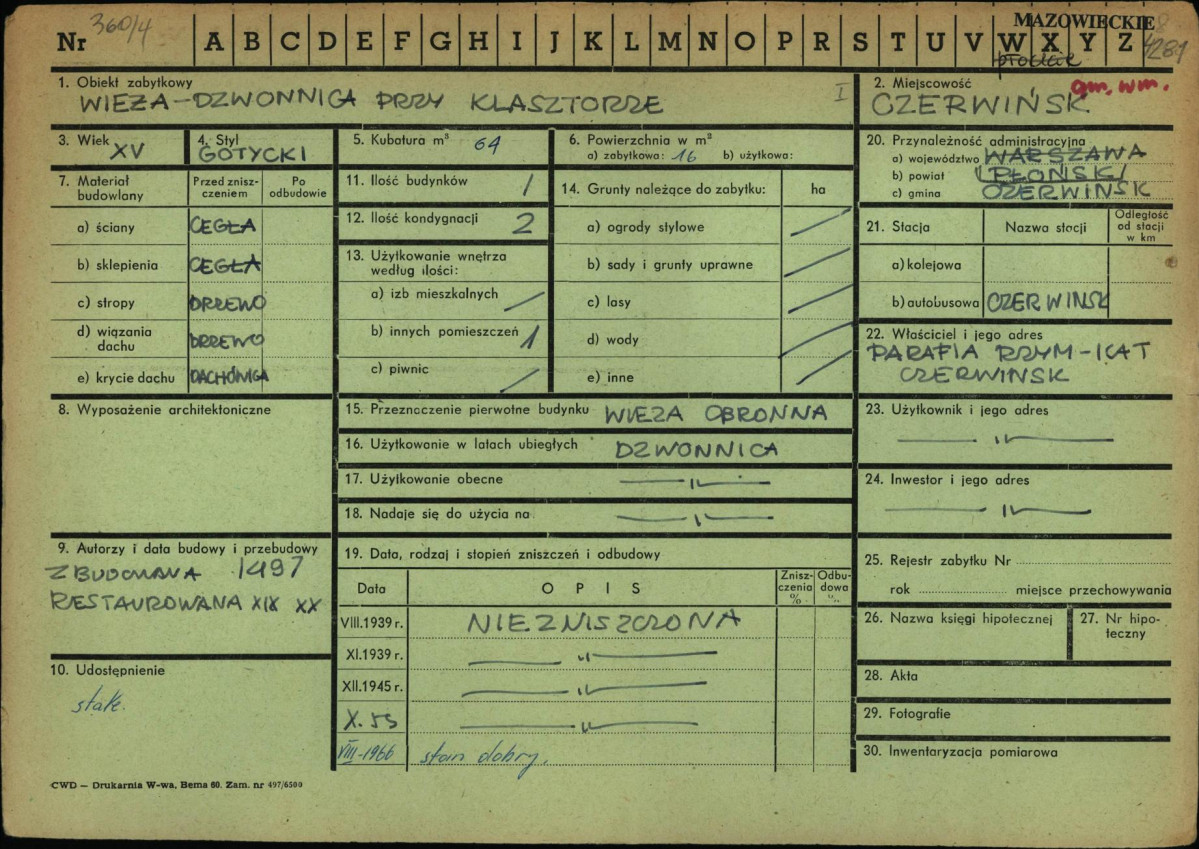 MAZOWIECKIE
Nr 360/4 A B C D E F G H I J K L M N O P R S T U V W X Y Z
płockie 4281
1. Obiekt zabytkowy
WIEŻA-DZWONNICA PRZY KLASZTORZE I
2. Miejscowość gm. wm.
CZERWIŃSK
3. Wiek
XV
4. Styl
GOTYCKI
5. Kubatura m³ 64
6. Powierzchnia w m²
a) zabytkowa: 16 b) użytkowa:
20. Przynależność administracyjna
a) województwo WARSZAWA
b) powiat (PŁOŃSK)
c) gmina CZERWIŃSK
7. Materiał budowlany
Przed znisz-
czeniem
Po
odbudowie
a) ściany CEGŁA
b) sklepienia CEGŁA
c) stropy DRZEWO
d) wiązania
dachu DRZEWO
e) krycie dachu DACHÓWKA
11. Ilość budynków 1
12. Ilość kondygnacji 2
13. Użytkowanie wnętrza
według ilości:
a) izb mieszkalnych
b) innych pomieszczeń 1
c) piwnic
14. Grunty należące do zabytku: ha
a) ogrody stylowe
b) sady i grunty uprawne
c) lasy
d) wody
e) inne
21. Stacja Nazwa stacji
Odległość
od stacji
w km
a) kolejowa
b) autobusowa CZERWIŃSK
22. Właściciel i jego adres
PARAFIA RZYM-KAT
CZERWIŃSK
8. Wyposażenie architektoniczne
15. Przeznaczenie pierwotne budynku WIEŻA OBRONNA
16. Użytkowanie w latach ubiegłych DZWONNICA
17. Użytkowanie obecne — " —
18. Nadaje się do użycia na — " —
23. Użytkownik i jego adres
— " —
24. Inwestor i jego adres
— " —
9. Autorzy i data budowy i przebudowy
ZBUDOWANA 1497
RESTAUROWANA XIX XX
10. Udostępnienie
stałe.
19. Data, rodzaj i stopień zniszczeń i odbudowy
Data OPIS
Znisz-
czenia
%
Odbu-
dowa
%
VIII.1939 r. NIEZNISZCZONA
XI.1939 r. — " —
XII.1945 r. — " —
X. 55 — " —
VIII-1966 stan dobry.
25. Rejestr zabytku Nr
rok miejsce przechowywania
26. Nazwa księgi hipotecznej
27. Nr hipo-
teczny
28. Akta
29. Fotografie
30. Inwentaryzacja pomiarowa
CWD — Drukarnia W-wa, Bema 60. Zam. nr 497/6500